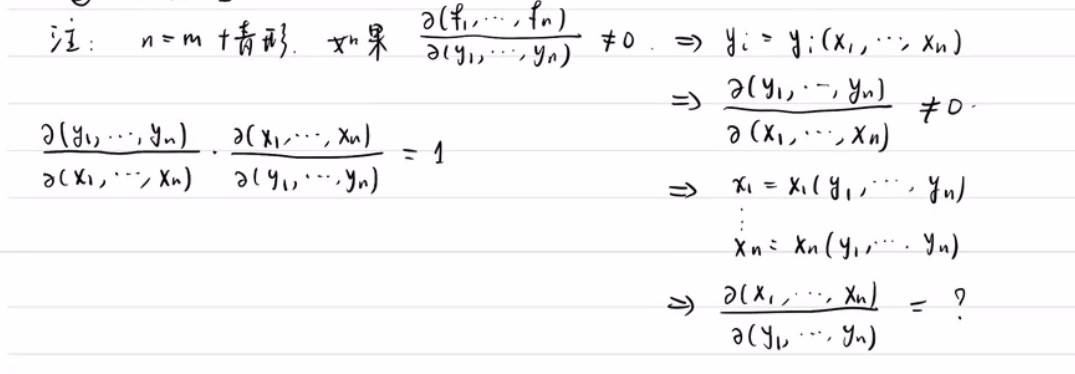 注: n=m 情形. 如果 ∂(f₁,⋯,fₙ)/∂(y₁,⋯,yₙ) ≠0. ⇒ yᵢ = yᵢ(x₁,⋯,xₙ)
⇒ ∂(y₁,⋯,yₙ)/∂(x₁,⋯,xₙ) ≠0.
∂(y₁,⋯,yₙ)/∂(x₁,⋯,xₙ) · ∂(x₁,⋯,xₙ)/∂(y₁,⋯,yₙ) = 1
⇒ x₁ = x₁(y₁,⋯,yₙ)
⋮
xₙ = xₙ(y₁,⋯,yₙ)
⇒ ∂(x₁,⋯,xₙ)/∂(y₁,⋯,yₙ) = ?